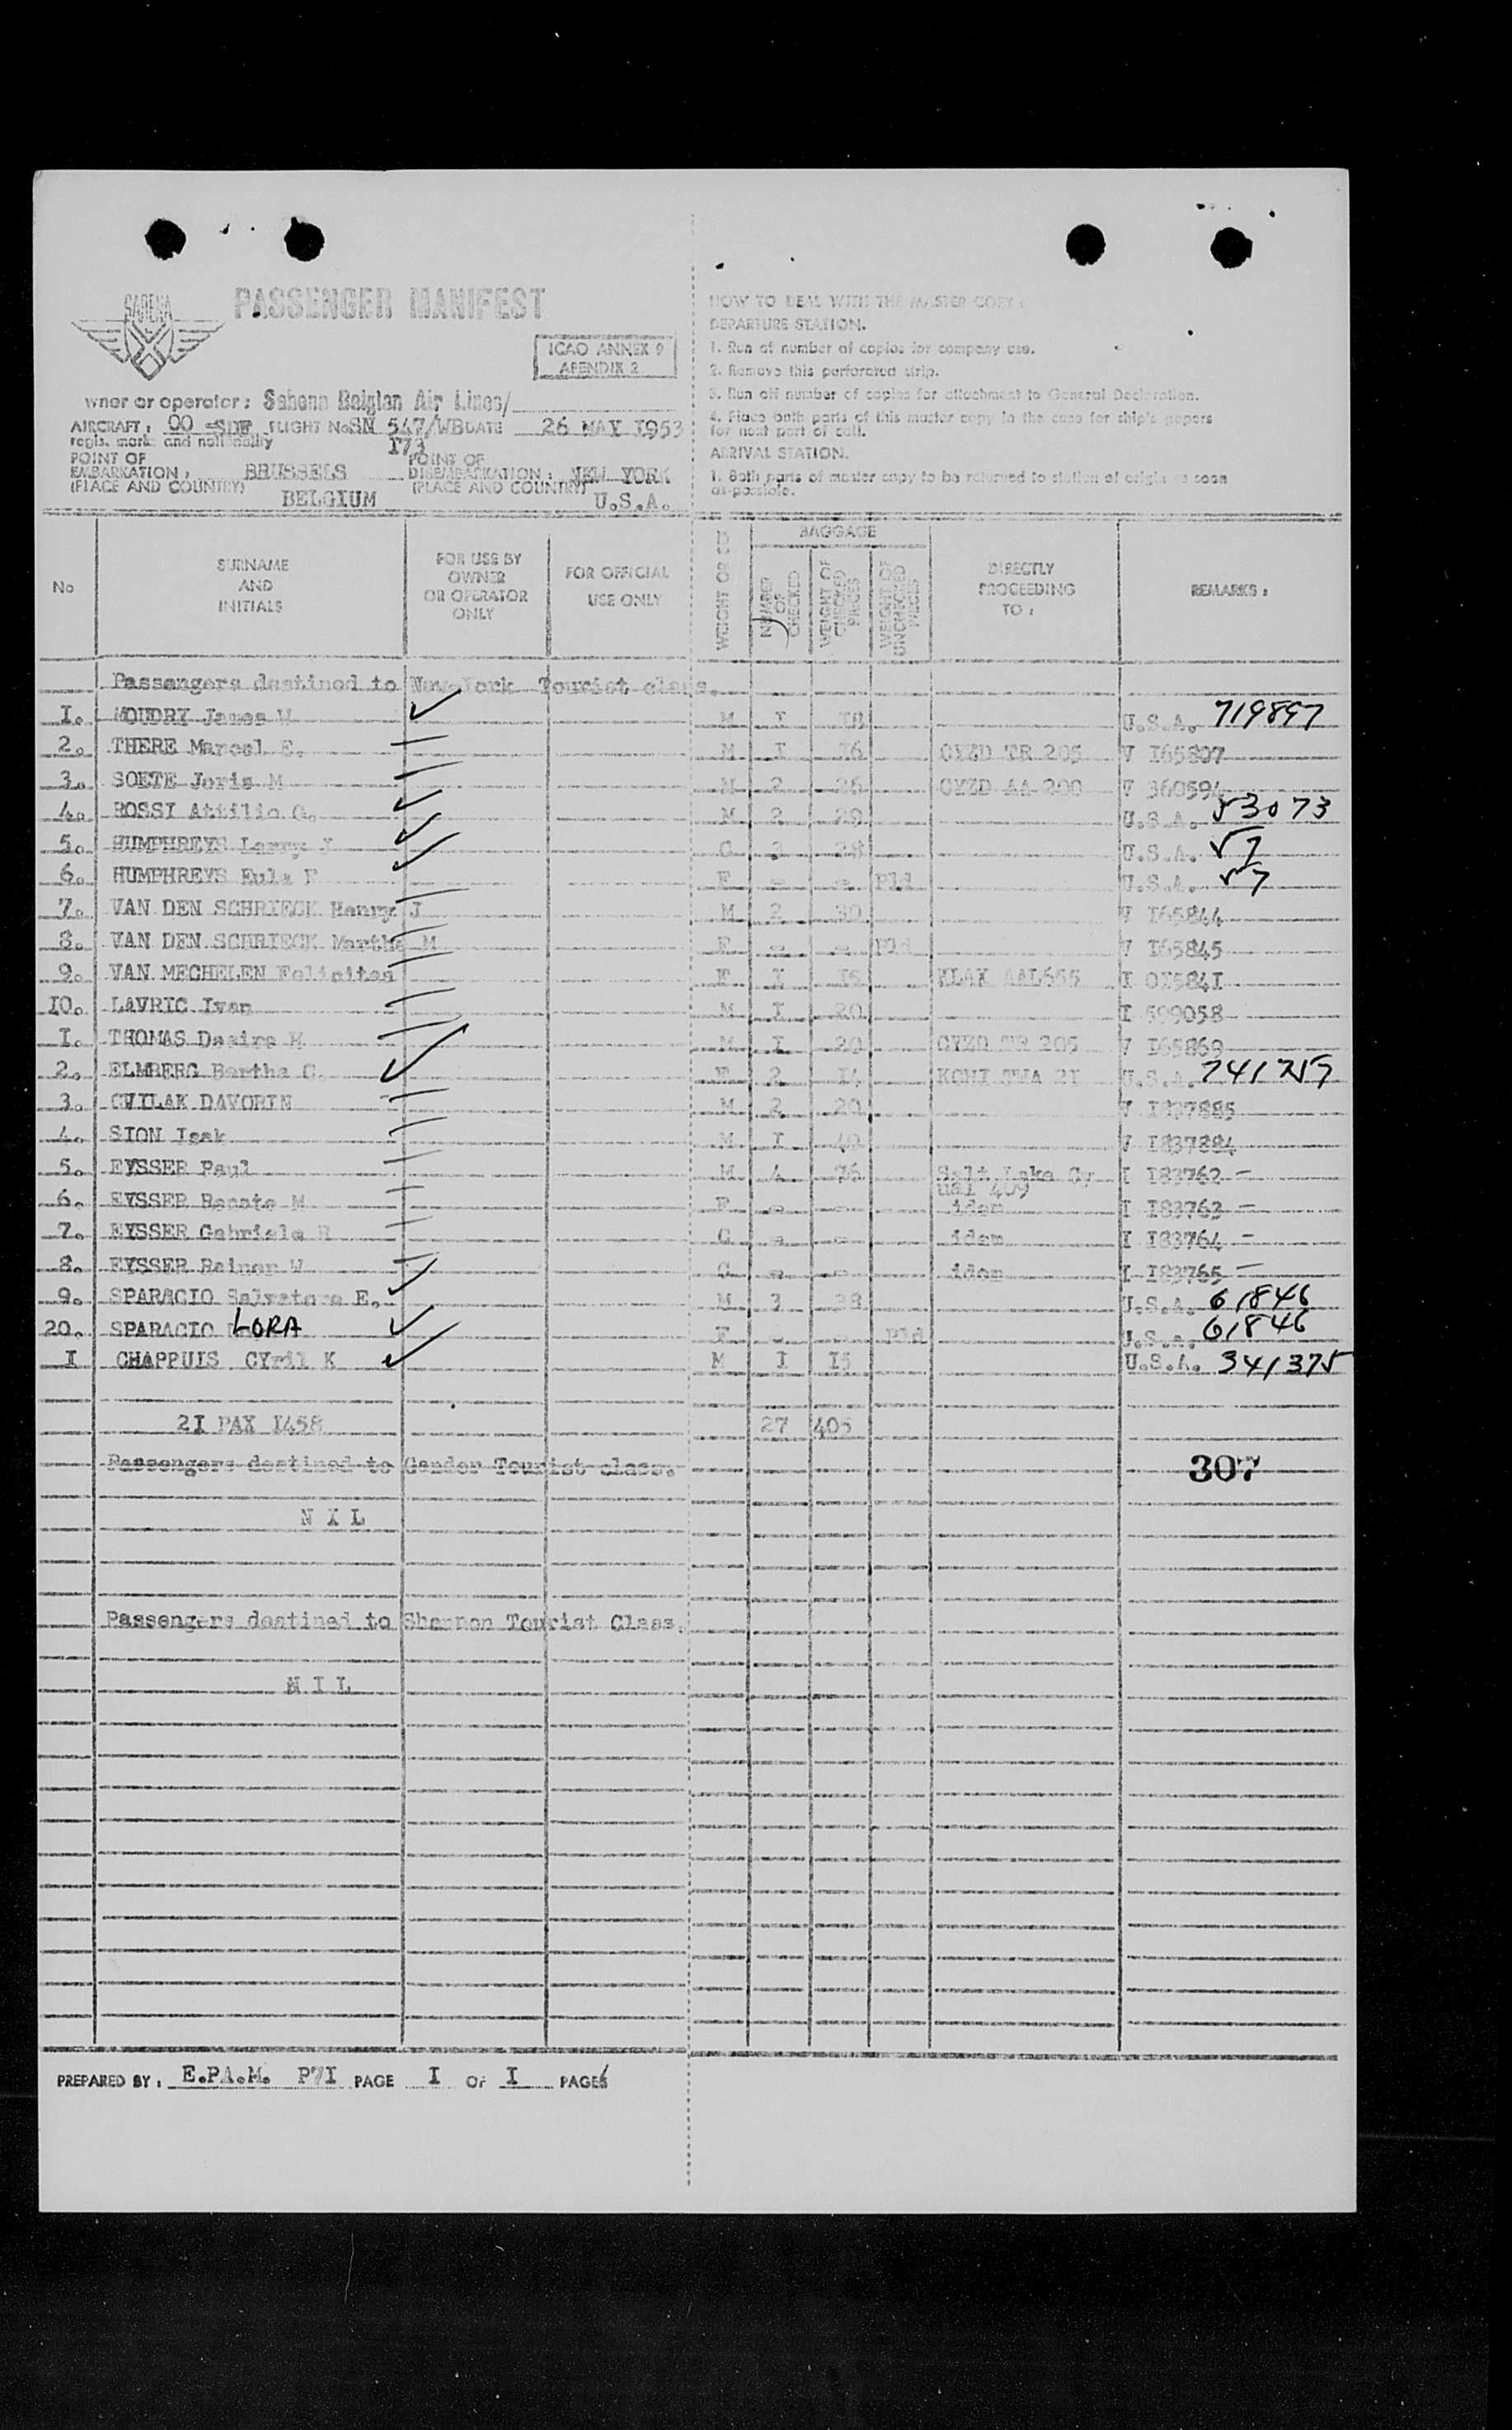 SABENA
PASSENGER MANIFEST
ICAO ANNEX 9
APENDIX 2
wner or operator : Sabena Belgian Air Lines/
AIRCRAFT : OO -SDF FLIGHT No SN 547/WB DATE 26 MAY I953
regis. marks and nationality I73
POINT OF EMBARKATION : BRUSSELS POINT OF DISEMBARKATION : NEW YORK
(PLACE AND COUNTRY) BELGIUM (PLACE AND COUNTRY) U.S.A.
HOW TO DEAL WITH THE MASTER COPY :
DEPARTURE STATION.
1. Run of number of copies for company use.
2. Remove this perforated strip.
3. Run off number of copies for attachment to General Declaration.
4. Place both parts of this master copy in the case for ship's papers
for next port of call.
ARRIVAL STATION.
1. Both parts of master copy to be returned to station of origin as soon
as possible.
No SURNAME AND INITIALS FOR USE BY OWNER OR OPERATOR ONLY FOR OFFICIAL USE ONLY WEIGHT OR BAGGAGE NUMBER OF CHECKED WEIGHT OF CHECKED PIECES WEIGHT OF UNCHECKED PIECES DIRECTLY PROCEEDING TO : REMARKS :
Passengers destined to New York Tourist class.
I. MOUDRY James W M I I8 U.S.A. 719897
2. THERE Marcel E. M I I6 CYZD TR 205 V I65807
3. SOETE Joris M M 2 26 CYZD AA 200 V 360594
4. ROSSI Attilio G. M 2 29 U.S.A. 53073
5. HUMPHREYS Larry J C 3 28 U.S.A. 57
6. HUMPHREYS Eula F F - - Pld U.S.A. 57
7. VAN DEN SCHRIECK Henry J M 2 30 V I65844
8. VAN DEN SCHRIECK Martha M F - - Pld V I65845
9. VAN MECHELEN Felicitas F I I5 KLAX AAL655 I 0I584I
I0. LAVRIC Ivan M I 20 I 599058
I. THOMAS Desire H M I 20 CYZD TR 205 V I65869
2. ELMBERG Bertha C. F 2 I4 KCHI TWA 2I U.S.A. 741757
3. CVILAK DAVORIN M 2 20 V I837885
4. SION Isak M I 40 V I837884
5. EYSSER Paul M 4 76 Salt Lake Cy I I83762 -
ual 409
6. EYSSER Renate M F - - idem I I83763 -
7. EYSSER Gabriele R C - - idem I I83764 -
8. EYSSER Rainer W C - - idem I I83765 -
9. SPARACIO Salvatore E. M 3 38 U.S.A. 61846
20. SPARACIO LORA F - - Pld U.S.A. 61846
I CHAPPUIS CYril K M I I5 U.S.A. 341375
2I PAX I458 27 405
Passengers destined to Gander Tourist class.
307
N I L
Passengers destined to Shannon Tourist Class.
N I L
PREPARED BY : E.PA.M. P7I PAGE I OF I PAGES